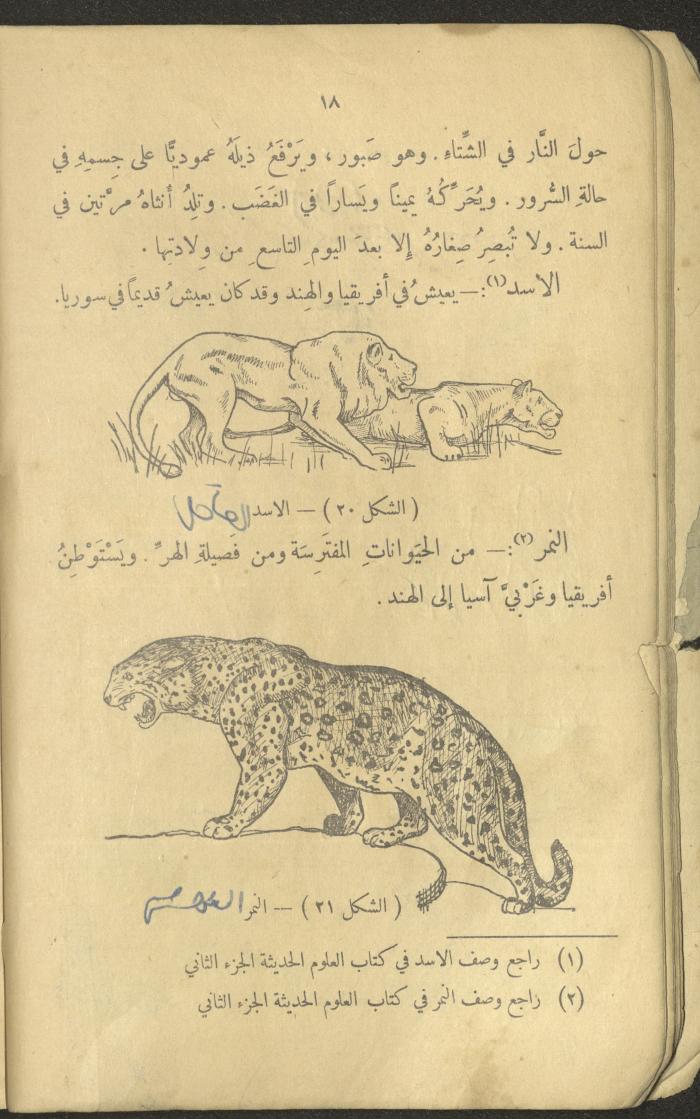 ١٨
حولَ النَّار في الشِّتاءِ . وهو صَبور ، ويَرْفَعُ ذيلَهُ عموديًّا على جِسمِهِ في
حالةِ السُّرور . ويُحَرِّكُهُ يميناً ويَساراً في الغَضَب . وتلِدُ أنثاهُ مرَّتين في
السنة . ولا تُبصِرُ صِغارُهُ إِلا بعدَ اليومِ التاسعِ من وِلادتِها .
الأسد(١):— يعيشُ في أفريقيا والهِند وقد كان يعيشُ قديماً في سوريا .
( الشكل ٢٠ ) — الاسد
النمر(٢):— من الحيَوانات المفتَرِسَة ومن فَصيلةِ الهرِّ . ويَسْتَوْطِنُ
أفريقيا وغَرْبيَّ آسيا إلى الهند .
( الشكل ٢١ ) — النمر
(١) راجع وصف الاسد في كتاب العلوم الحديثة الجزء الثاني
(٢) راجع وصف النمر في كتاب العلوم الحديثة الجزء الثاني